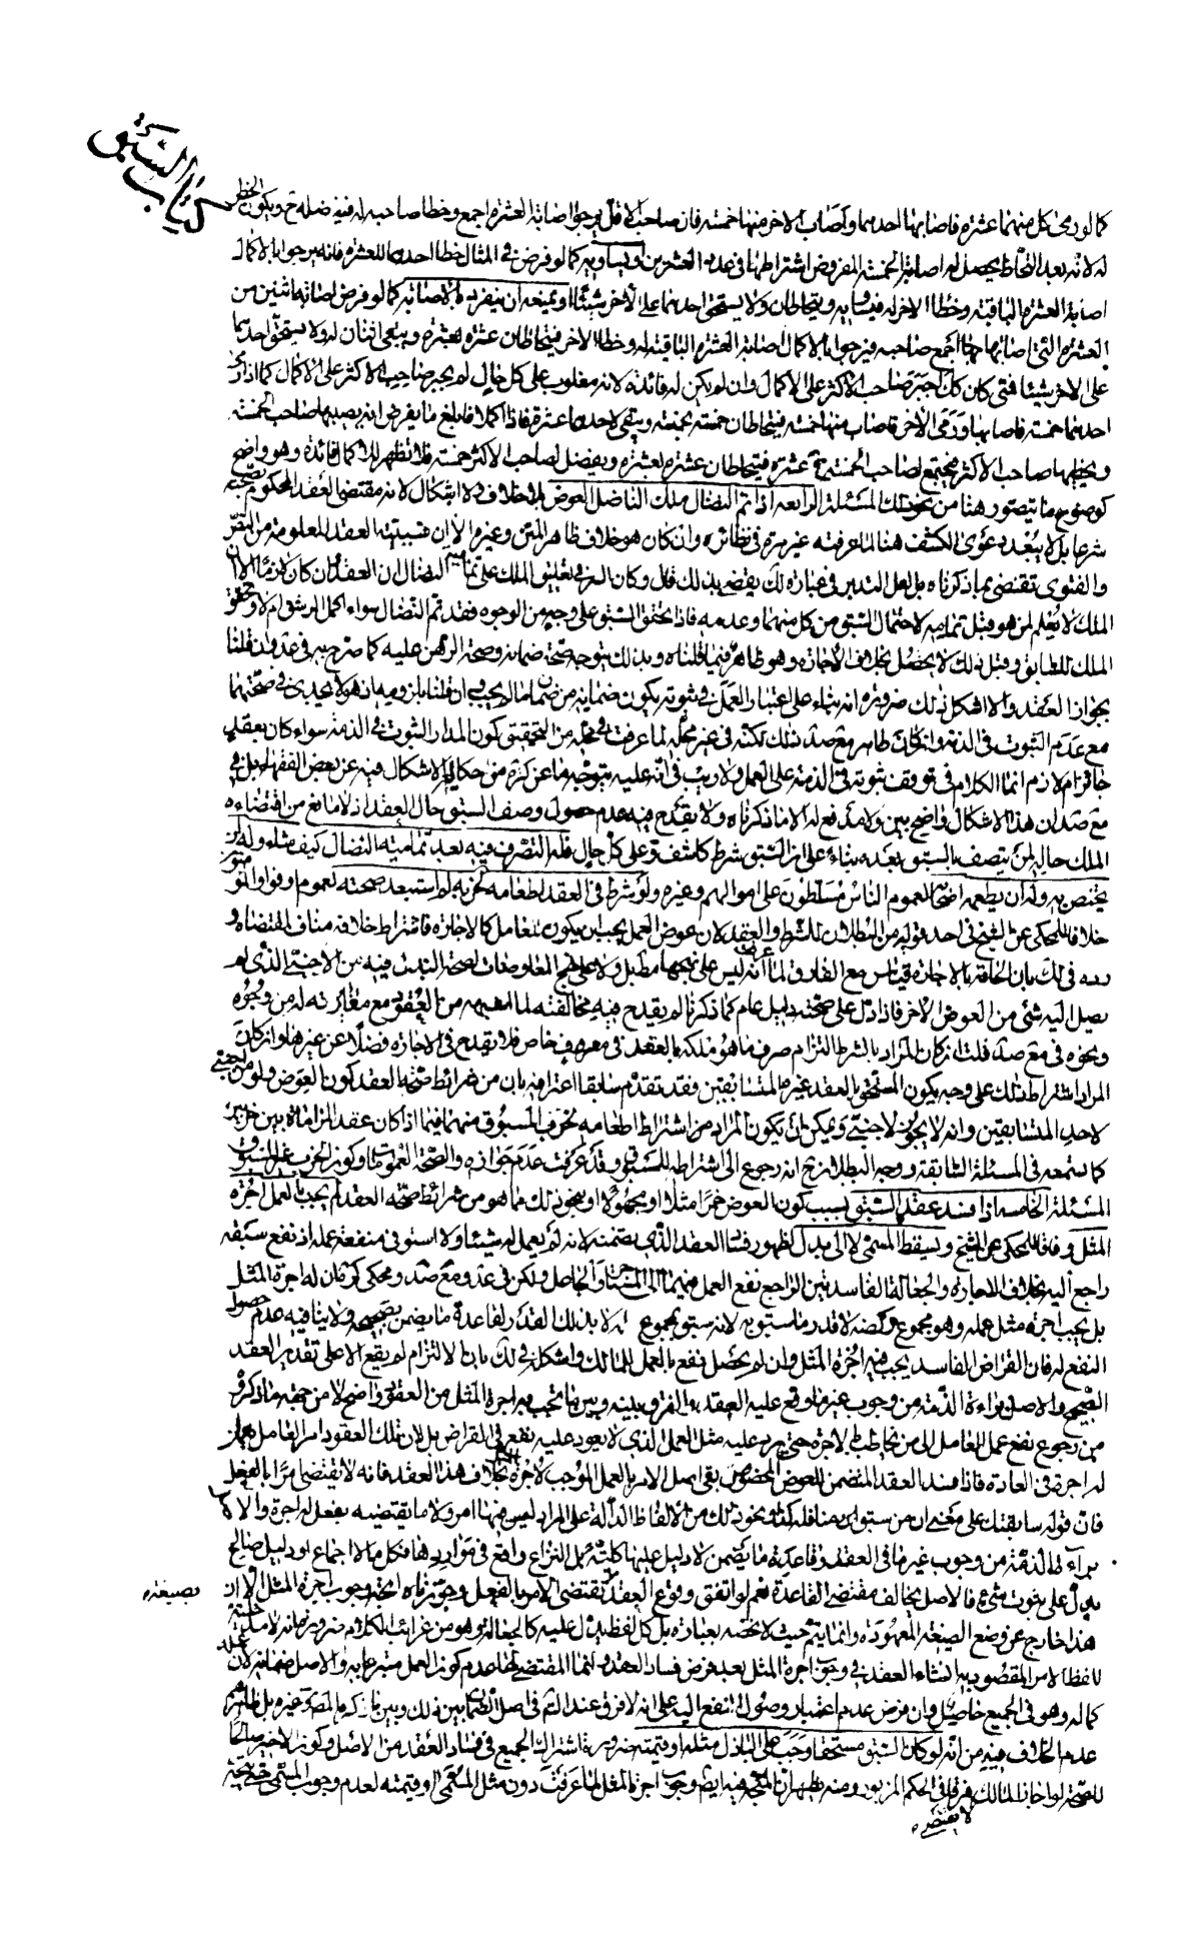 كتاب السبق
كما لو رمى كل منهما عشرة فاصابها احدهما واصاب الاخر منها خمسة فان صاحب الاقل يرجوا صابة العشرة اجمع وخطا صاحبه له فيه فضله ح ويكون الحظ
له لانه بعد التحاط يحصل له اصابة الخمسة المفروض اشتراطها في عدد العشرين او يساويه كما لو فرض في المثال خطا احدهما للعشرة فانه يرجو بالاكمال
اصابة العشرة الباقية وخطاء الاخر له فيساويه ويتحاطان ولا يستحق احدهما على الاخر شيئا او يمنعه ان ينفرد بالاصابة كما لو فرض اصابتهما اثنين من
العشرة التي اصابها اجمع صاحبه فيرجوا بالاكمال اصابة العشرة الباقية له وخطا الاخر فيتحاطان عشرة بعشرة ويبقى اثنان له ولا يستحق احدهما
على الاخر شيئا فمتى كان كل اجبر صاحب الاكثر على الاكمال وان لم يكن له فائدة لانه مغلوب على كل حال لم يجبر صاحب الاكثر على الاكمال كما اذا رمى
احدهما خمسة فاصابها ورمى الاخر فاصاب منها خمسة فيتحاطان خمسة بخمسة ويبقى لاحدهما عشرة فاذا اكملا فابلغ ما يفرض انه يصيبها صاحب الخمسة
ويخطيها صاحب الاكثر فيجتمع لصاحب الخمسة ح عشرة فيتحاطان عشرة بعشرة ويفضل لصاحب الاكثر خمسة فلا تظهر للاكمال فائدة وهو واضح
كوضوح ما يتصور هنا من نحو ذلك المسئلة الرابعة اذا تم النضال ملك الناضل العوض بلا خلاف ولا اشكال لانه مقتضى العقد المحكوم بصحته
شرعا بل لا يبعد دعوى الكشف هنا لما عرفته غير مرة في نظائره وان كان هو خلاف ظاهر المتن وغيره الا ان سببية العقد المعلومة من النص
والفتوى تقتضي بما ذكرناه بل لعل التدبر في عبارة لك يقضي بذلك قال وكان السر في تعليق الملك على تمامية النضال ان العقد ان كان لازما الا ان
الملك لا يعلم لمن هو قبل تمامه لاحتمال السبق من كل منهما وعدمه فاذا تحقق السبق على وجه من الوجوه فقد تم النضال سواء اكمل الرشق ام لا وتحقق
الملك للسابق وقبل ذلك لا يحصل بخلاف الاجارة وهو ظاهر فيما قلناه وبذلك يتوجه صحة ضمانه وصحة الرهن عليه كما صرح به في عد وان قلنا
بجواز العقد والا اشكل ذلك ضرورة انه بناء على اعتبار العمل في ثبوته يكون ضمانه من ضمان ما لم يجب وان قلنا بلزومه اذ هو لا يجدي في صحتهما
مع عدم الثبوت في الذمة وان كان ظاهر مع صد ذلك لكنه في غير محله لما عرفت في محله من التحقيق كون المدار الثبوت في الذمة سواء كان بعقد
جائز ام لازم انما الكلام في توقف ثبوته في الذمة على العمل ولا ريب في انه عليه يتوجه ما عن كرة من حكاية الاشكال فيه عن بعض الفقهاء بل في
مع صد ان هذا الاشكال واضح بين ولا مدفع له الا ما ذكرناه ولا يقدح فيه عدم حصول وصف السبق حال العقد اذ لا مانع من اقتضاءه
الملك حاله لمن يتصف بالسبق بعده بناء على ان السبق شرط كاشف وعلى كل حال فله التصرف فيه بعد تمامية النضال كيف شاء وله ان
يختص به وله ان يطعمه اصحابه لعموم الناس مسلطون على اموالهم وغيره ولو شرط في العقد اطعامه لحزبه لم استبعد صحته لعموم اوفوا والمؤمنون
خلافا للمحكي عن الشيخ في احد قوليه من البطلان للشرط والعقد لان عوض العمل يجب ان يكون للعامل كالاجارة فاشتراط خلافه مناف لمقتضاه و
رده في لك بان الحاقه بالاجارة قياس مع الفارق لما انه ليس على نهجها مطبل ولا على نهج المعاوضات لصحة البذل فيه من الاجنبي الذي لم
يصل اليه شئ من العوض الاخر فاذا دل على صحته دليل عام كما ذكرنا لم يقدح فيه مخالفته لما اشبهه من العقود مع مغايرته له من وجوه
ونحوه في مع صد قلت ان كان المراد بالشرط التزام صرف ما هو ملكه بالعقد في مصرف خاص فلا يقدح في الاجارة فضلا عن غيرها وان كان
المراد اشتراط ذلك على وجه يكون المستحق بالعقد غير المتسابقين فقد تقدم سابقا اعترافه بان من شرائط صحة العقد كون العوض ولو من اجنبي
لاحد المتسابقين وانه لا يجوز لاجنبي ويمكن ان يكون المراد من اشتراط اطعامه لحزب المسبوق منهما فيما اذا كان عقد المراماة بين حزبين
كما ستمعه في المسئلة السابقة ووجه البطلان ح انه رجوع الى اشتراطه للمسبوق وقد عرفت عدم جوازه والصحة العمومات وكون الحزب غير المسبوق
المسئلة الخامسة اذا فسد عقد السبق بسبب كون العوض خمرا مثلا او مجهولا او نحو ذلك مما هو من شرائط صحة العقد لم يجب بالعمل اجرة
المثل وفاقا للمحكي عن الشيخ ويسقط المسمى لا الى بدل لظهور فساد العقد الذي يضمنه لانه لم يعمل له شيئا ولا استوفى منفعة عمله اذ نفع سبقه
راجع اليه بخلاف الاجارة والجعالة الفاسدتين الراجع نفع العمل منهما الى المستاجر والجاعل ولكن في عد ومع صد ومحكي كرة ان له اجرة المثل
بل يجب اجرة مثل عمله وهو مجموع ركضه لا قدر ما سبق به لانه سبق بمجموع لا بذلك القدر لقاعدة ما يضمن بصحيحه ولا ينافيه عدم حصول
النفع له فان القراض الفاسد يجب فيه اجرة المثل وان لم يحصل نفع بالعمل للمالك واشكله في لك بان الالتزام لم يقع الا على تقدير العقد
الصحيح والاصل براءة الذمة من وجوب غير ما وقع عليه العقد والفرق بينه وبين ما تجب فيه اجرة المثل من العقود واضح لا من جهة ما ذكروه
من رجوع نفع عمل العامل الى من يخاطب بالاجرة حتى يرد عليه مثل العمل الذي لا يعود عليه نفع في القراض بل لان تلك العقود امر العامل بعمل
له اجرة في العادة فاذا فسد العقد المتضمن للعوض المخصوص بقي اصل الامر بالعمل الموجب لاجرة المثل بخلاف هذا العقد فانه لا يقتضي امرا بالفعل
فان قوله سابقتك على معنى ان من سبق منا فله كذا ونحو ذلك من الالفاظ الدالة على المراد ليس فيها امر ولا ما يقتضيه بفعل له اجرة والاصل
براءة الذمة من وجوب غير ما في العقد وقاعدة ما يضمن لا دليل عليها كلية بل النزاع واقع في مواردها فكل ما لا اجماع او دليل صالح
يدل على ثبوت شئ فالاصل يخالف مقتضى القاعدة نعم لو اتفق وقوع العقد بصيغة تقتضي الامر بالفعل وجوزناه اتجه وجوب اجرة المثل الا ان
هذا خارج عن وضع الصيغة المعهودة وانما يتم حيث لا نخصه بعبارة بل كل لفظ يدل عليه كالجعالة وهو من غرائب الكلام ضرورة انه لا مدخلية
للفظ الامر المقصود به انشاء العقد في وجوب اجرة المثل بعد فرض فساد العقد وانما المقتضي لها عدم كون العمل متبرعا به والاصل ضمانه لان عمله
كماله وهو في الجميع حاصل وان فرض عدم اعتبار وصول النفع اليه على انه لا فرق عند التم في اصل الضمان بين ذلك وبين ما ذكره المصنف وغيره بل ظاهرهم
عدم الخلاف فيه من انه لو كان السبق مستحقا وجب على الباذل مثله او قيمته ضرورة اشتراك الجميع في فساد العقد من الاصل وكون الاخير صالحا
للصحة لو اجاز المالك فرقا في الحكم المزبور ومنه يظهر ان المتجه فيه ايضا وجوب اجرة المثل لما عرفت دون مثل المسمى او قيمته لعدم وجوب المسمى حتى يتجه
لا يقتضي